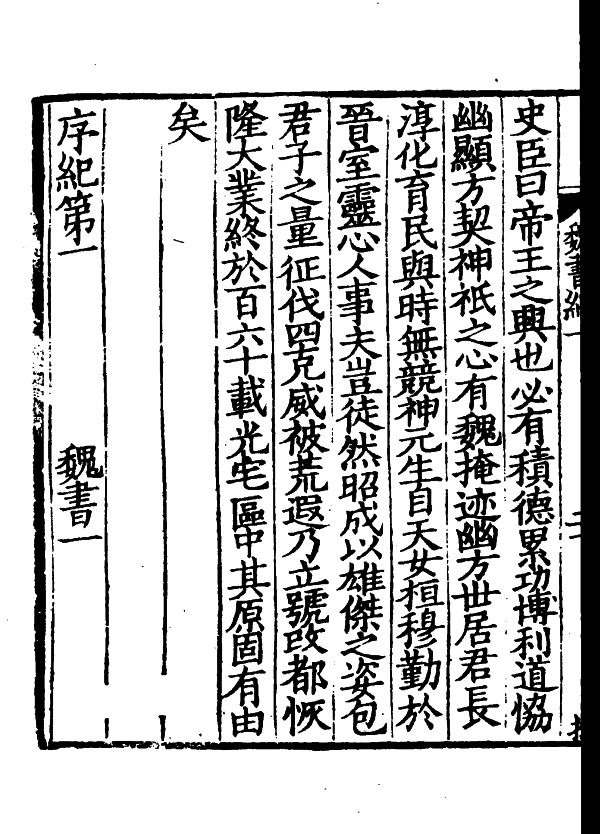 魏書紀一
史臣曰帝王之興也必有積德累功博利道協
幽顯方契神祇之心有魏掩迹幽方世居君長
淳化育民與時無競神元生自天女桓穆勤於
晉室靈心人事夫豈徒然昭成以雄傑之姿包
君子之量征伐四克威被荒遐乃立號改都恢
隆大業終於百六十載光宅區中其原固有由
矣
序紀第一　魏書一